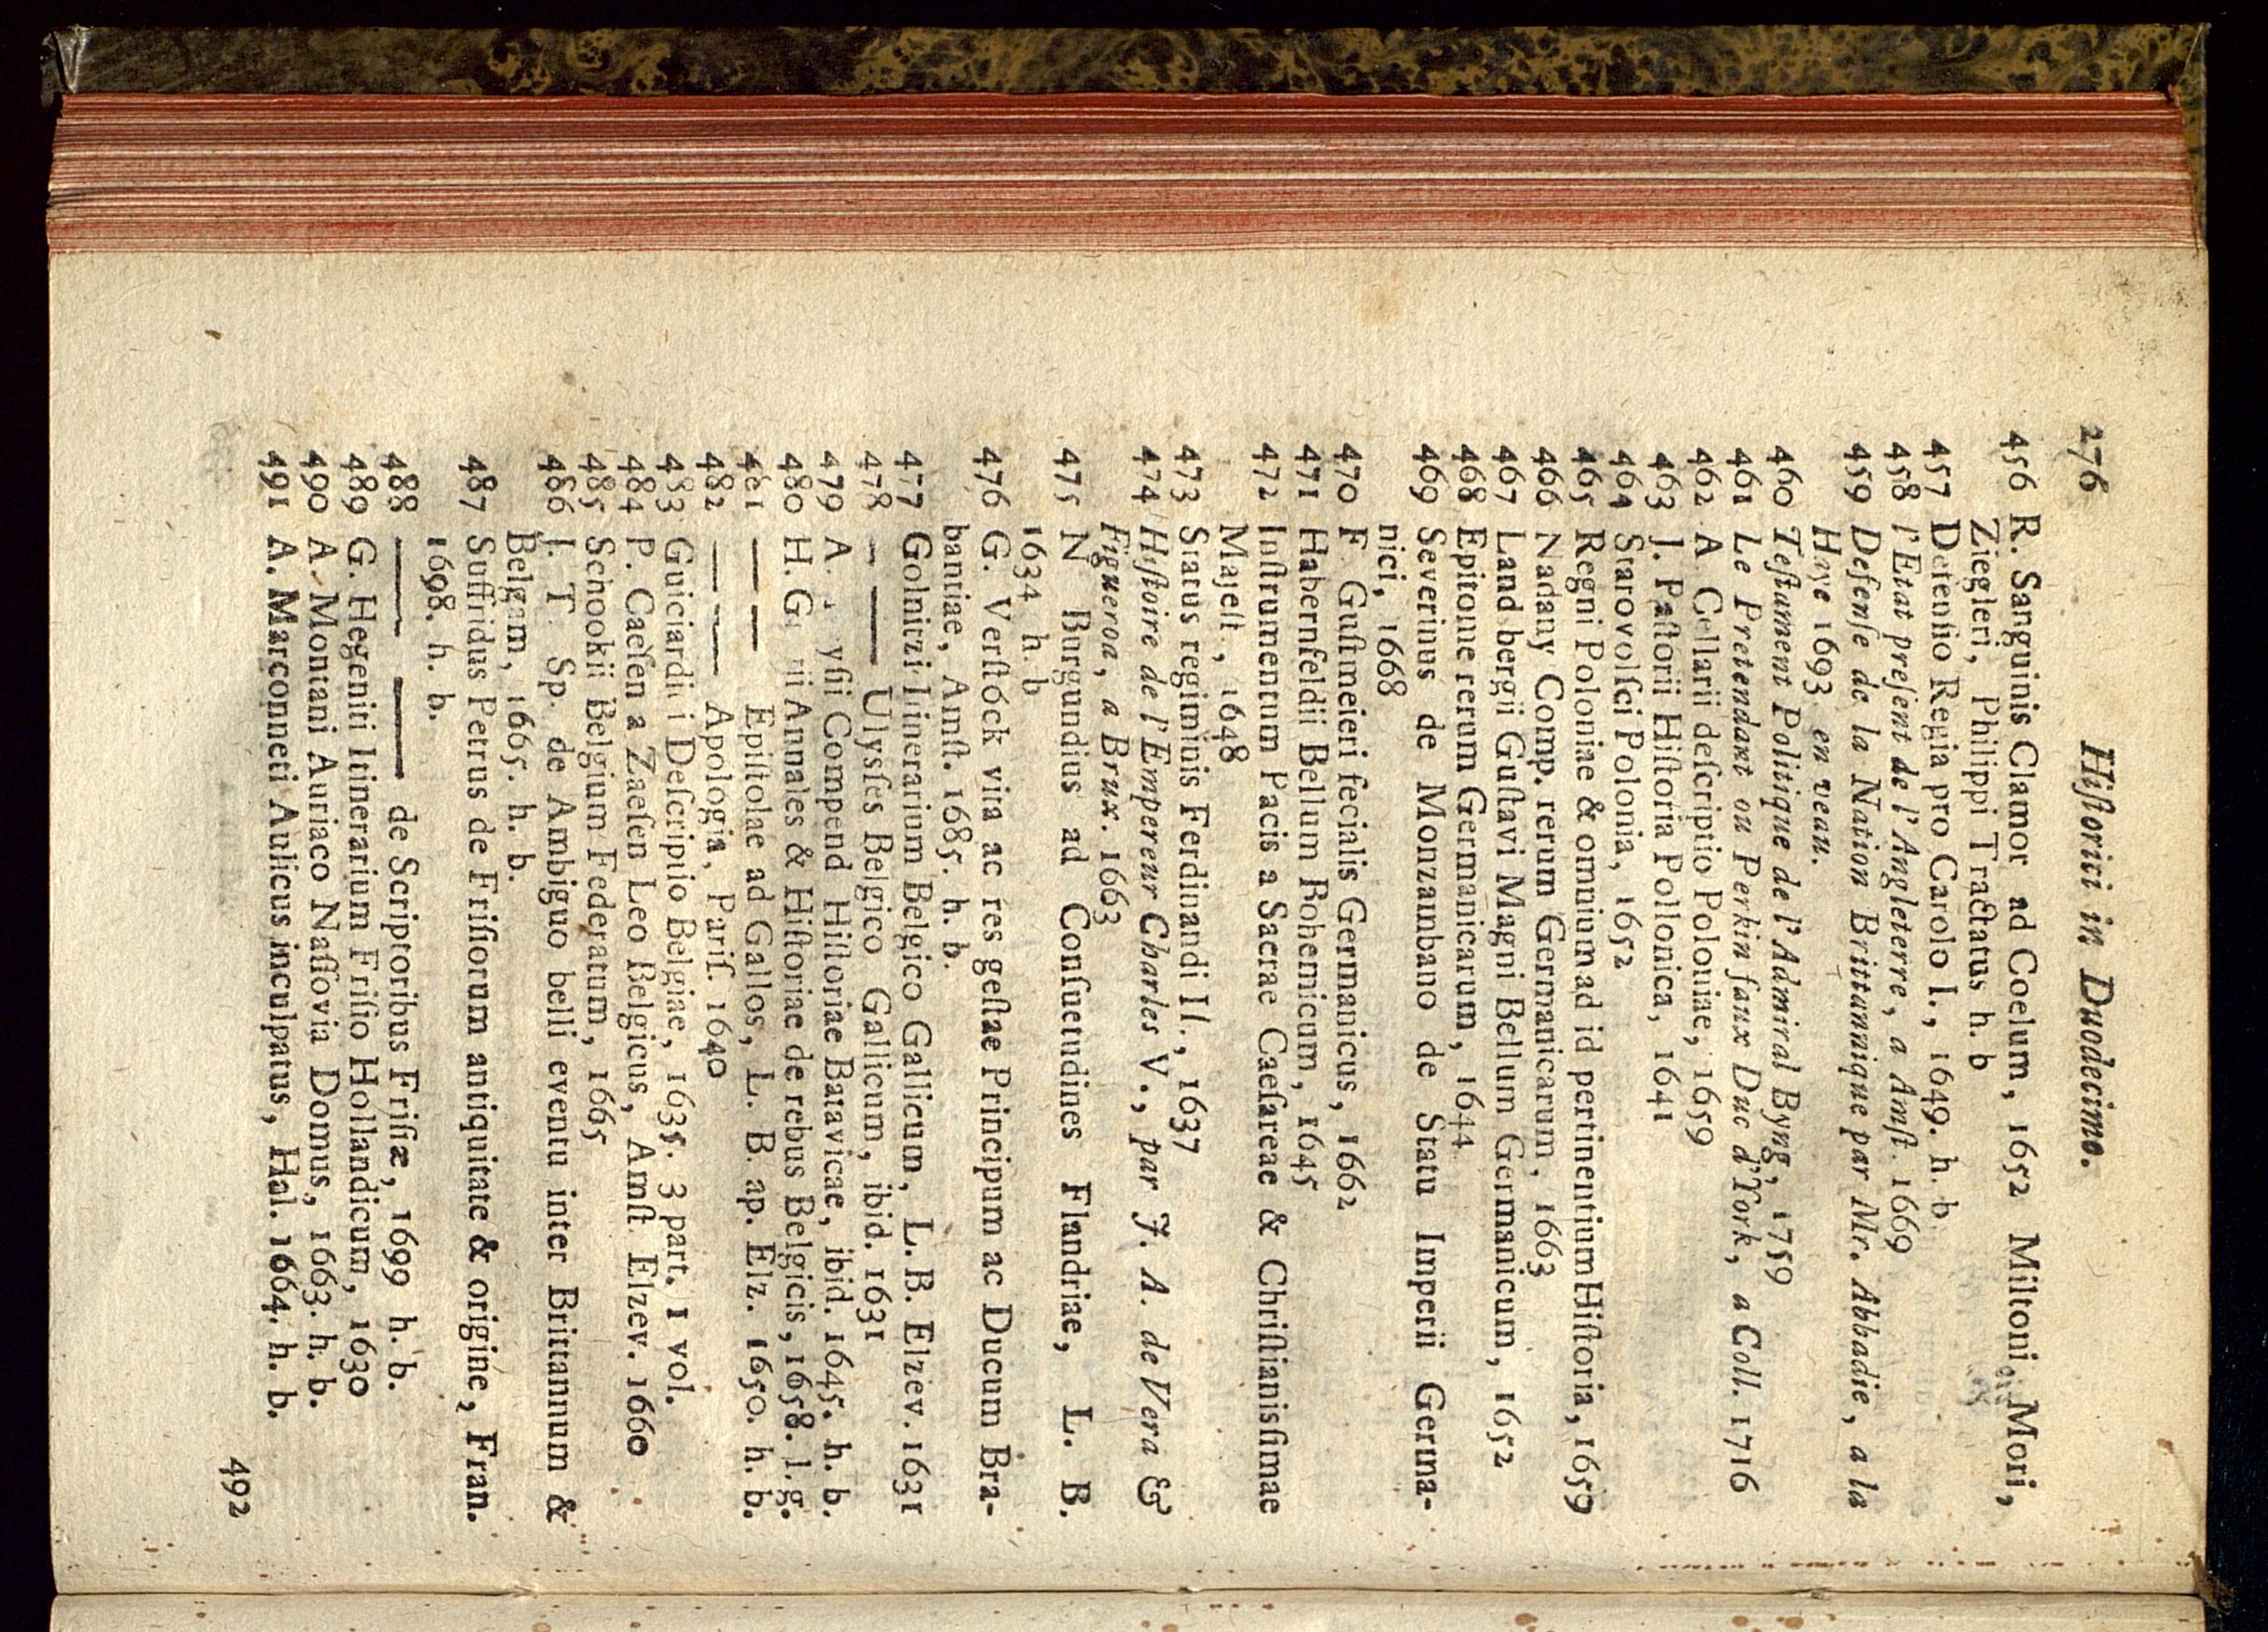 276 Hiſtorici in Duodecimo.
456 R. Sanguinis Clamor ad Coelum, 1652 Miltoni, Mori,
Ziegleri, Philippi Tractatus h. b
457 Defenſio Regia pro Carolo I., 1649. h. b.
458 l'Etat preſent de l'Angleterre, a Amſt. 1669
459 Defenſe de la Nation Brittannique par Mr. Abbadie, a la
Haye 1693 en veau.
460 Teſtament Politique de l'Admiral Byng, 1759
461 Le Pretendant ou Perkin faux Duc d'York, a Coll. 1716
462 A Cellarii deſcriptio Poloniae, 1659
463 J. Paſtorii Hiſtoria Pollonica, 1641
464 Starovolſci Polonia, 1652
465 Regni Poloniae & omnium ad id pertinentium Hiſtoria, 1659
466 Nadany Comp. rerum Germanicarum, 1663
467 Land bergii Guſtavi Magni Bellum Germanicum, 1652
468 Epitome rerum Germanicarum, 1644
469 Severinus de Monzambano de Statu Imperii Germa-
nici, 1668
470 F Guſtmeieri fecialis Germanicus, 1662
471 Habernfeldii Bellum Bohemicum, 1645
472 Inſtrumentum Pacis a Sacrae Caeſareae & Chriſtianisſimae
Majeſt, 1648
473 Status regiminis Ferdinandi II., 1637
474 Hiſtoire de l'Empereur Charles V., par J. A. de Vera &
Figueroa, a Brux. 1663
475 N Burgundius ad Conſuetudines Flandriae, L. B.
1634 h. b
476 G. Verſtóck vita ac res geſtae Principum ac Ducum Bra-
bantiae, Amſt. 1685. h. b.
477 Golnitzi Itinerarium Belgico Gallicum, L. B. Elzev. 1631
478 — — Ulysſes Belgico Gallicum, ibid. 1631
479 A. yſii Compend Hiſtoriae Batavicae, ibid. 1645. h. b.
480 H. G. ii Annales & Hiſtoriae de rebus Belgicis, 1658. l. g.
481 — — Epiſtolae ad Gallos, L. B. ap. Elz. 1650. h. b.
482 — — Apologia, Pariſ. 1640
483 Guiciardini Deſcriptio Belgiae, 1635. 3 part. 1 vol.
484 P. Caeſen a Zaeſen Leo Belgicus, Amſt Elzev. 1660
485 Schookii Belgium Federatum, 1665
486 J. T. Sp. de Ambiguo belli eventu inter Brittannum &
Belgam, 1665. h. b.
487 Suffridus Petrus de Friſiorum antiquitate & origine, Fran.
1698. h. b.
488 — — de Scriptoribus Friſiæ, 1699 h. b.
489 G. Hegeniti Itinerarium Friſio Hollandicum, 1630
490 A. Montani Auriaco Naſſovia Domus, 1663. h. b.
491 A. Marconneti Aulicus inculpatus, Hal. 1664. h. b.
492